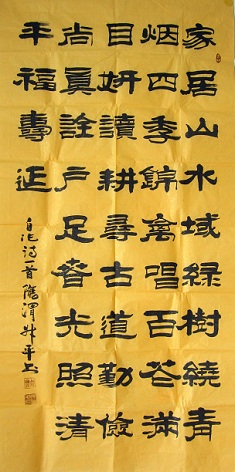 家居山水域緑樹繞青
烟四季錦禽唱百花滿
目妍讀耕尋古道勤儉
尚眞詮戶足春光照清
平福壽延
自作诗一首 渭 平书